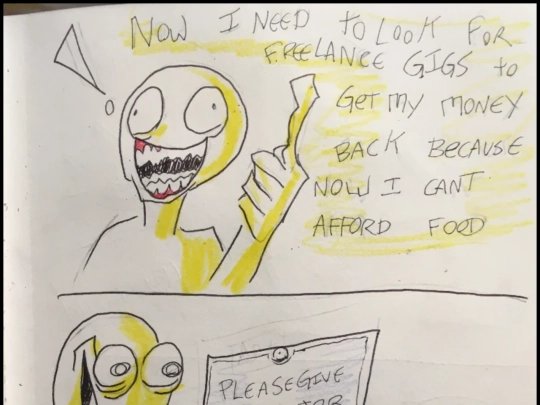 NOW I NEED to LOOK FOR
FREELANCE GIGS to
GET MY MONEY
BACK BECAUSE
NOW I CANT
AFFORD FOOD
PLEASE GIVE
JOB